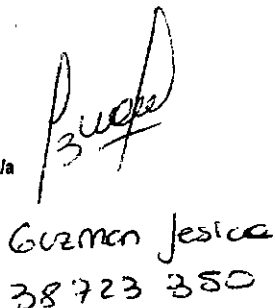 /a
Guzman Jesica
38 723 350